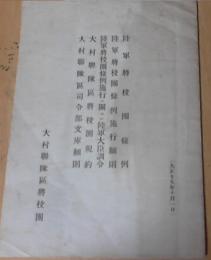 陸軍將校團條例
陸軍將校團條例施行細則
陸軍將校團條例施行ニ關スル陸軍大臣訓令
大村聯隊區將校團規約
大村聯隊區司令部文庫細則
大村聯隊區將校團